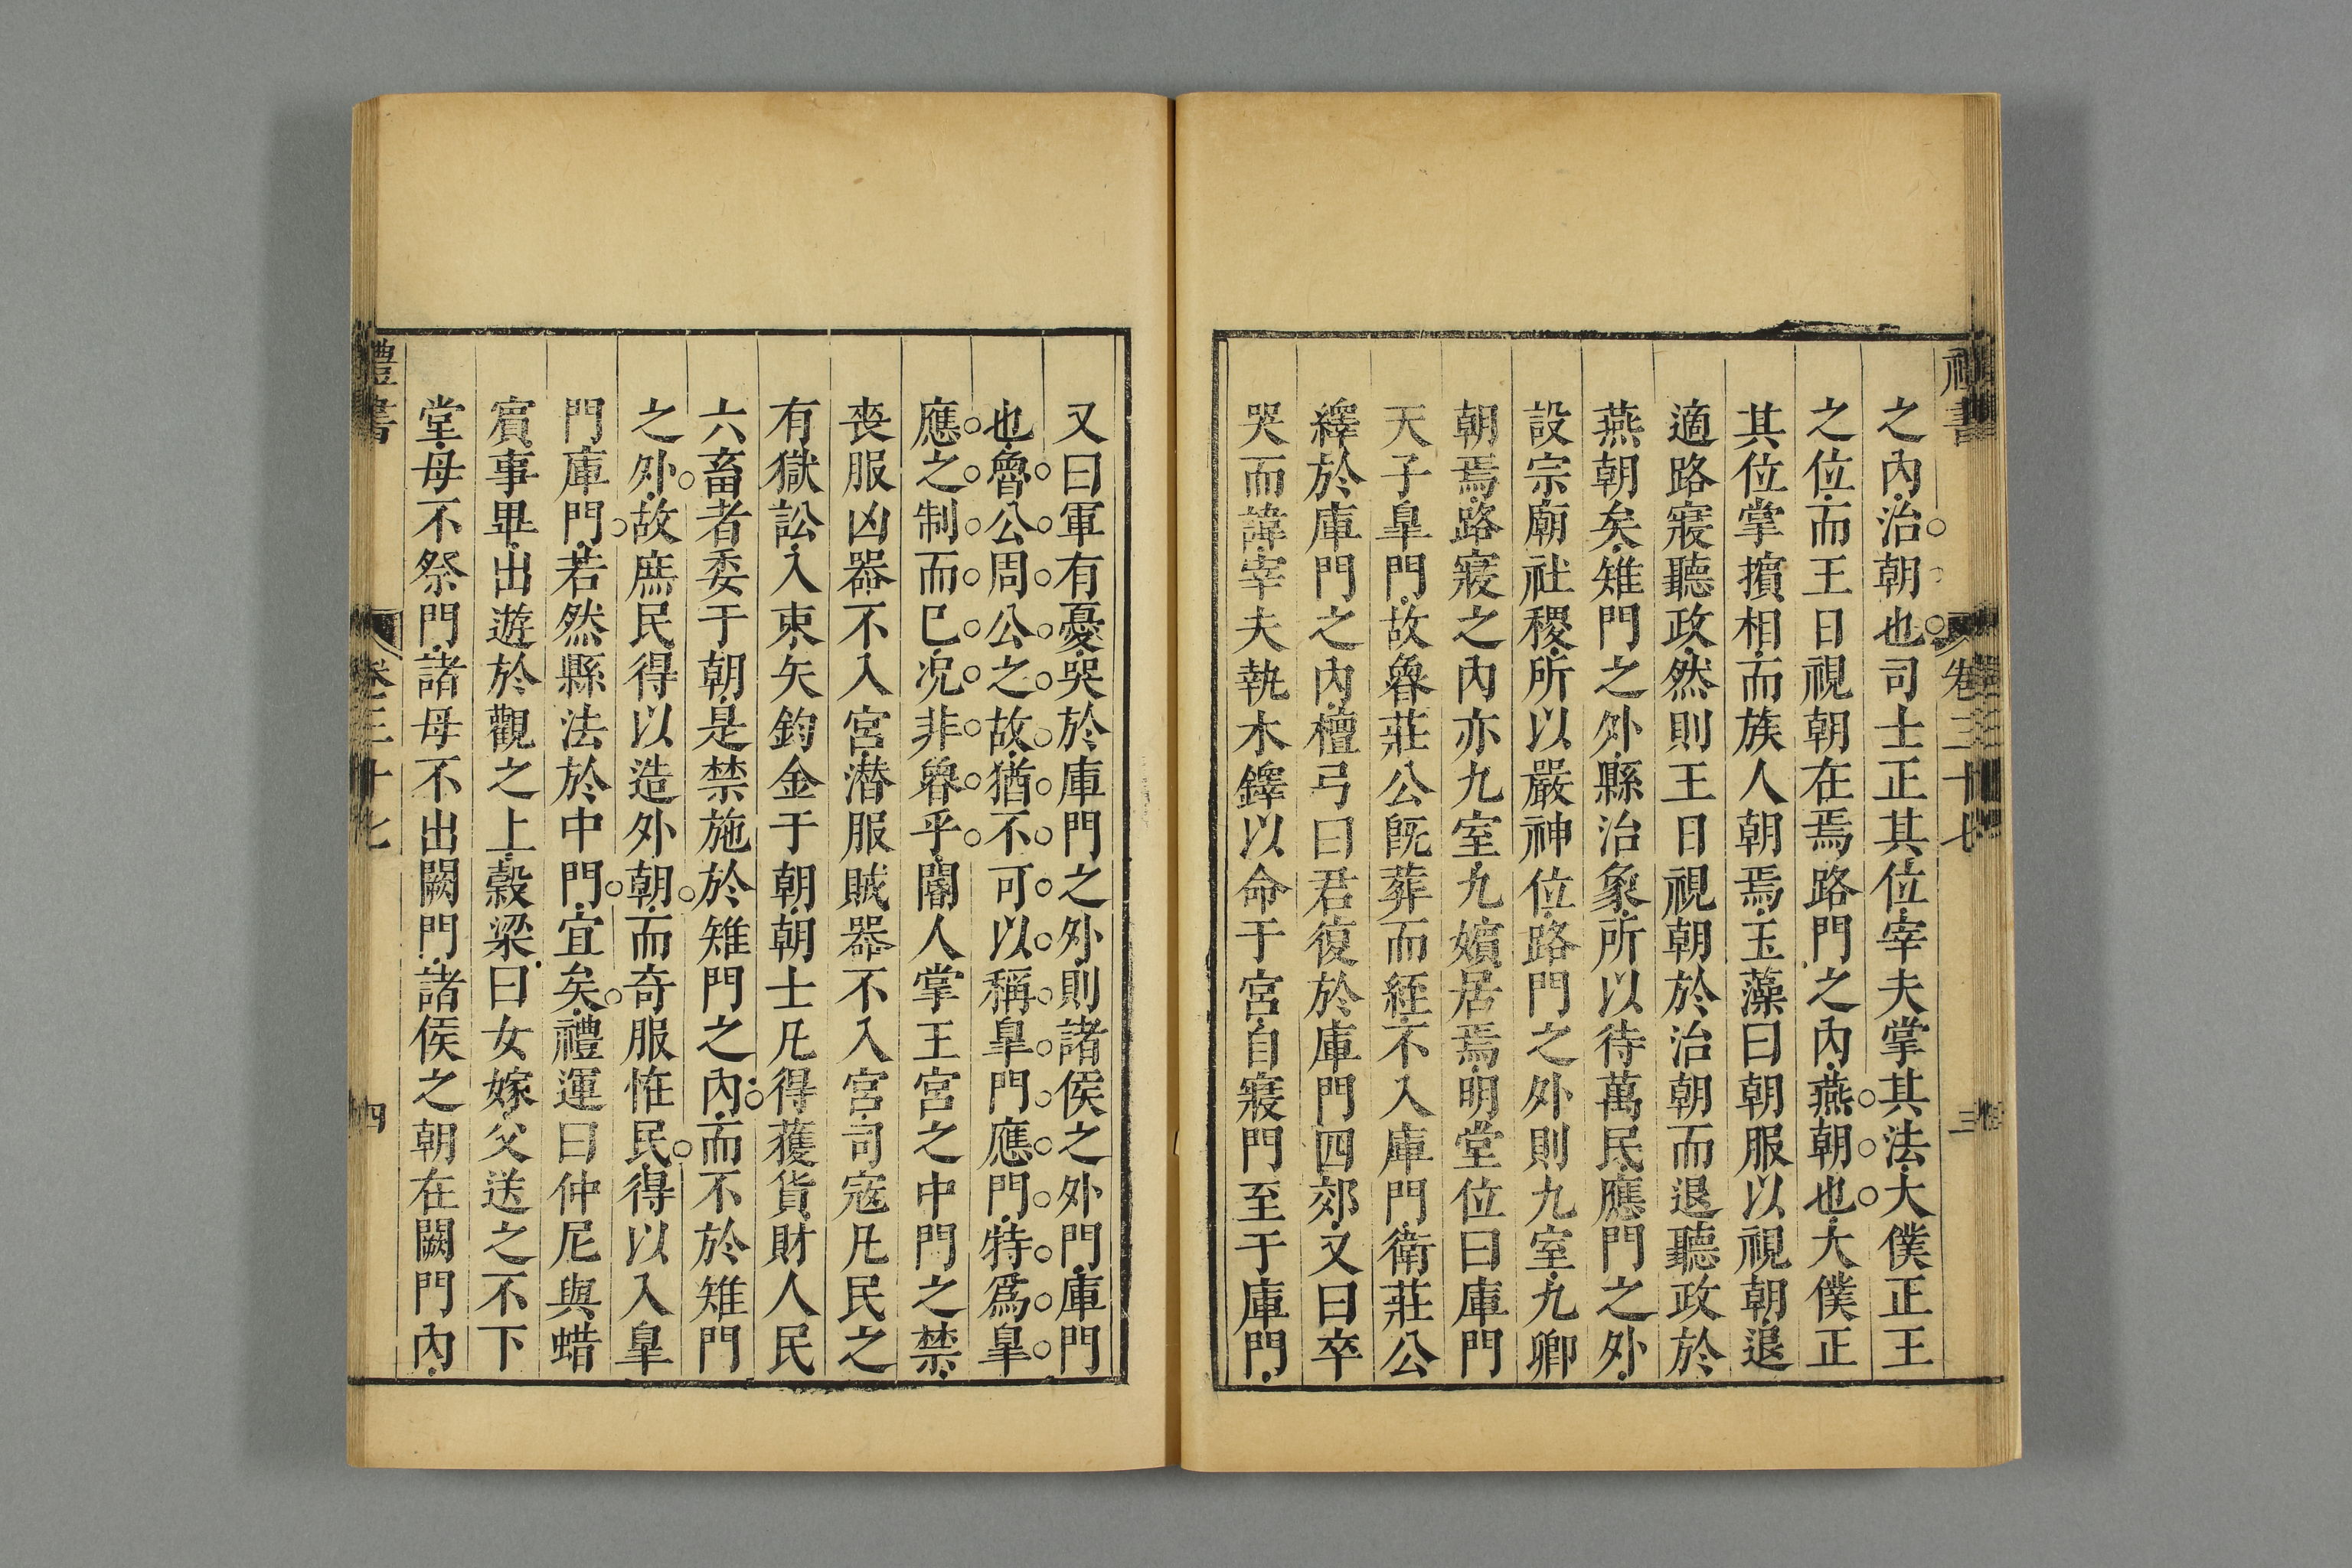 之內治朝也司士正其位宰夫掌其法大僕正王
之位而王日視朝在焉路門之內燕朝也大僕正
其位掌擯相而族人朝焉玉藻曰朝服以視朝退
適路寢聽政然則王日視朝於治朝而退聽政於
燕朝矣雉門之外縣治象所以待萬民應門之外
設宗廟社稷所以嚴神位路門之外則九室九卿
朝焉路寢之內亦九室九嬪居焉明堂位曰庫門
天子皐門故魯莊公旣葬而絰不入庫門衛莊公
繹於庫門之內檀弓曰君復於庫門四郊又曰卒
哭而諱宰夫執木鐸以命于宮自寢門至于庫門
又曰軍有憂哭於庫門之外則諸侯之外門庫門
也魯公周公之故猶不可以稱皐門應門特爲皐
應之制而已况非魯乎閽人掌王宮之中門之禁
喪服凶器不入宮潜服賊器不入宮司寇凡民之
有獄訟入束矢鈞金于朝朝士凡得獲貨財人民
六畜者委于朝是禁施於雉門之內而不於雉門
之外故庶民得以造外朝而奇服恠民得以入皐
門庫門若然縣法於中門宜矣禮運曰仲尼與蜡
賓事畢出遊於觀之上穀梁曰女嫁父送之不下
堂母不祭門諸母不出闕門諸侯之朝在闕門內
禮書
卷三十七
四